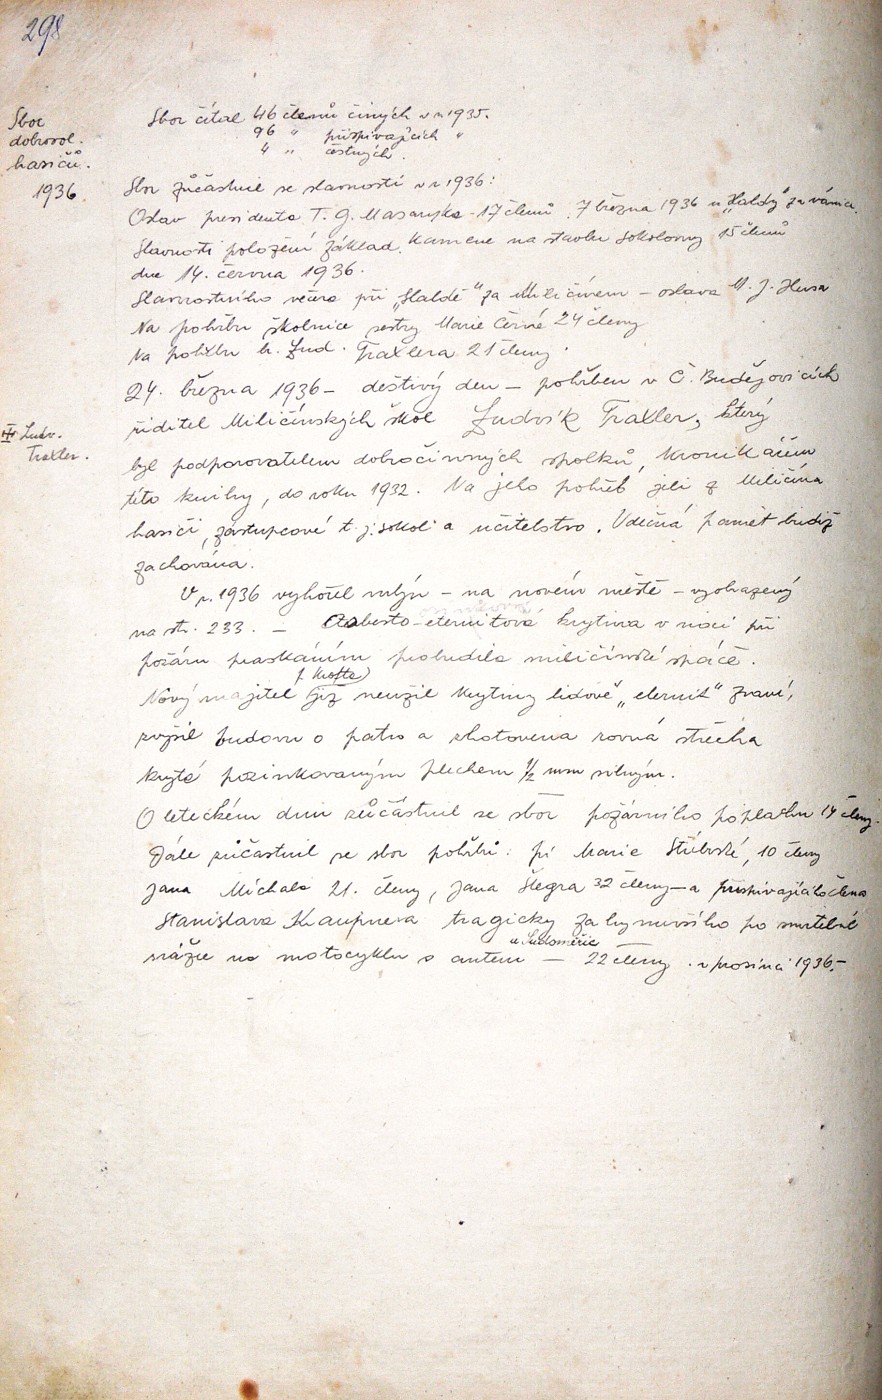 298
Sbor
dobrovol.
hasičů.
1936
Sbor čítal 46 členů činých v r. 1935.
96 „ přispívajících „
4 „ čestných.
Sbor zůčastnil se slavností v r. 1936:
Oslav presidenta T. G. Masaryka - 17 členů 7 března 1936 u „Haldy“
Slavnosti položení základ. kamene na stavbu sokolovny 15 členů
dne 14. června 1936.
Slavnostního večera při „Haldě“ za Miličínem - oslava M. J. Husa
Na pohřbu školnice sestry Marie Černé 24 členy
Na pohřbu br. Lud. Traxlera 21 členy.
24. března 1936 - deštivý den - pohřben v Č. Budějovicích
† Ludv.
Traxler.
řiditel Miličínských škol Ludvík Traxler, který
byl podporovatelem dobročinných spolků, kronikářem
této knihy, do roku 1932. Na jeho pohřeb jeli z Miličína
hasiči, zástupcové t. j. sokol a učitelstvo. Vděčná paměť budiž
zachována.
V r. 1936 vyhořel mlýn - na novém městě - vyobrazený
na str. 233. - Asbesto-eternitová krytina v noci při
požáru praskáním probudila miličínské spáče.
Nový majitel již neužil krytiny lidově „eternit“ zvaní,
zvýšil budovu o patro a zhotovena rovná střecha
krytá pozinkovaným plechem 1/2 mm silným.
O leteckém dnu zůčástnil se sbor požárního poplachu 14 členy.
Dále zůčastnil se sbor pohřbů: pí Marie 10 členy
Jana Míchala 21. členy, Jana Šlegra 32 členy - a přispívajícího člena
Stanislava tragicky zahynuvšího po smrtelné
srážce na motocyklu s autem u Sudoměřic - 22 členy. v prosinci 1936.-